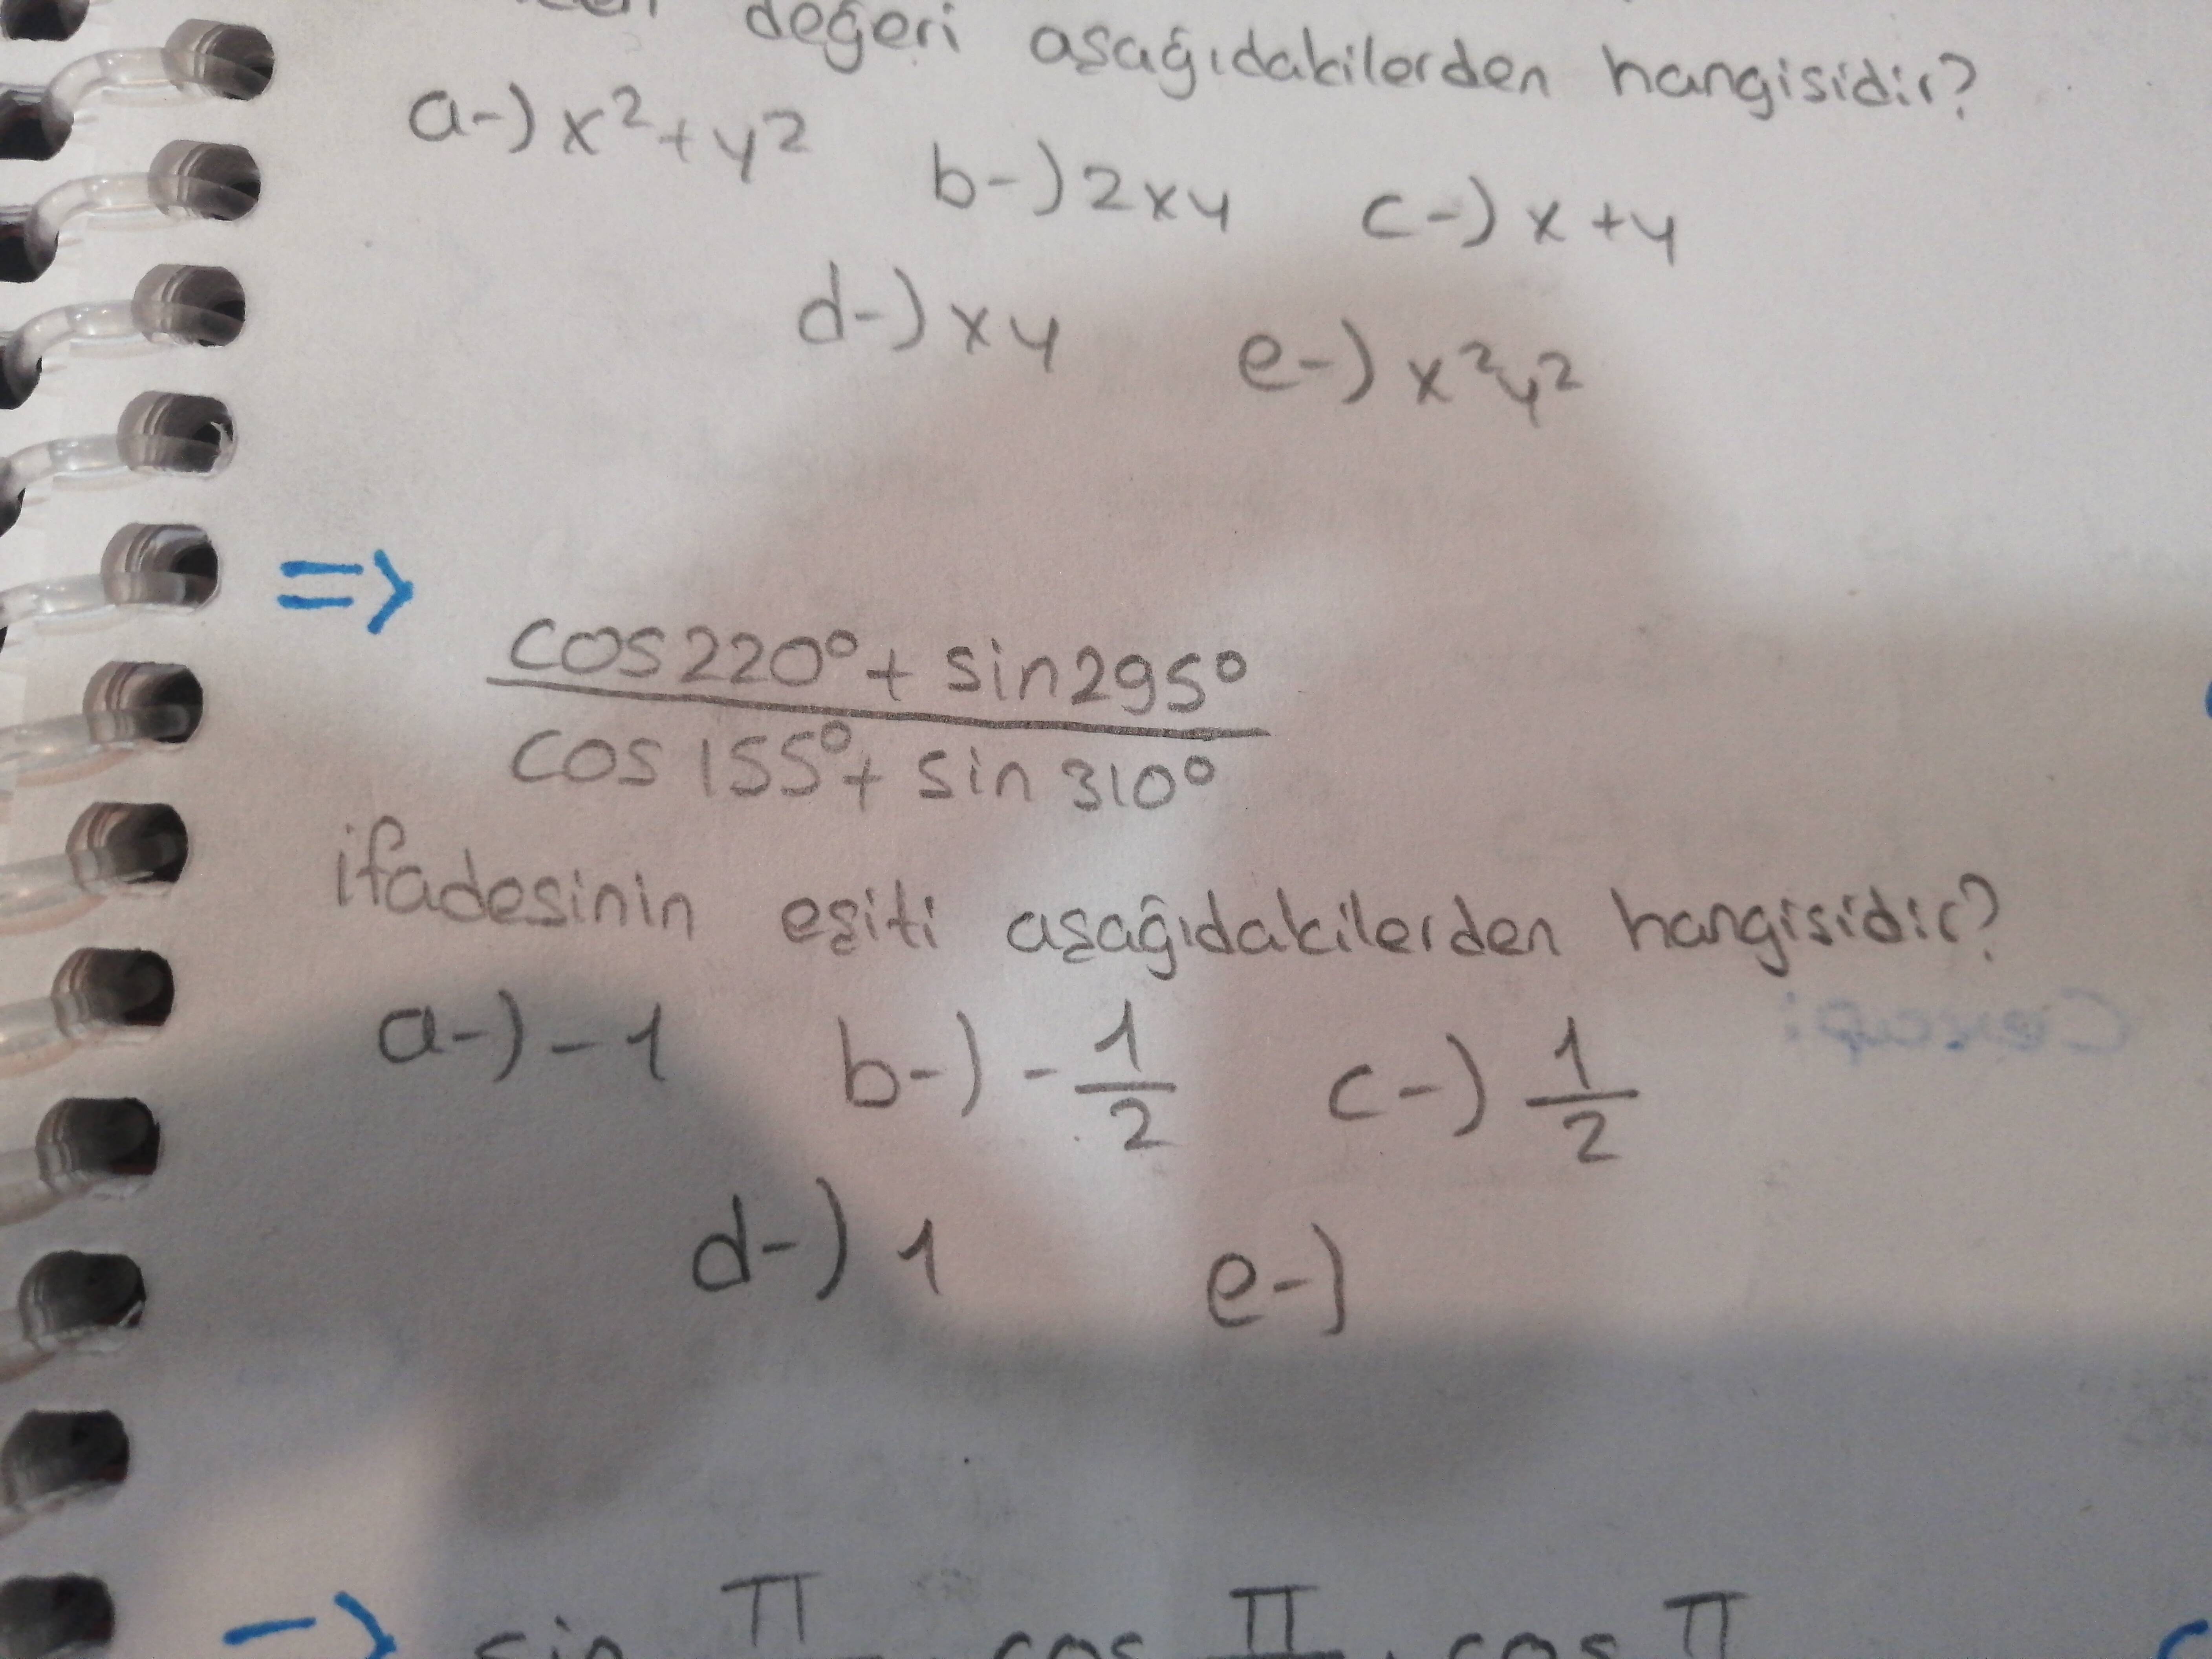 değeri aşağıdakilerden hangisidir?
a-) x²+y² b-) 2xy c-) x+y
d-) xy e-) x²y²
=>
cos220°+ sin295°
cos 155°+ sin 310°
ifadesinin eşiti aşağıdakilerden hangisidir?
a-) -1 b-) - 1/2 c-) 1/2
d-) 1 e-)
-> sin π cos π . cos π